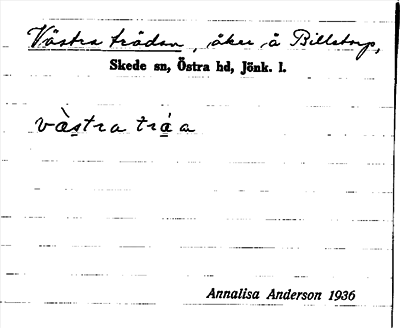 Västra trädan, åker å Billstorp,
Skede sn, Östra hd, Jönk. l.
vàstra tráa
Annalisa Anderson 1936